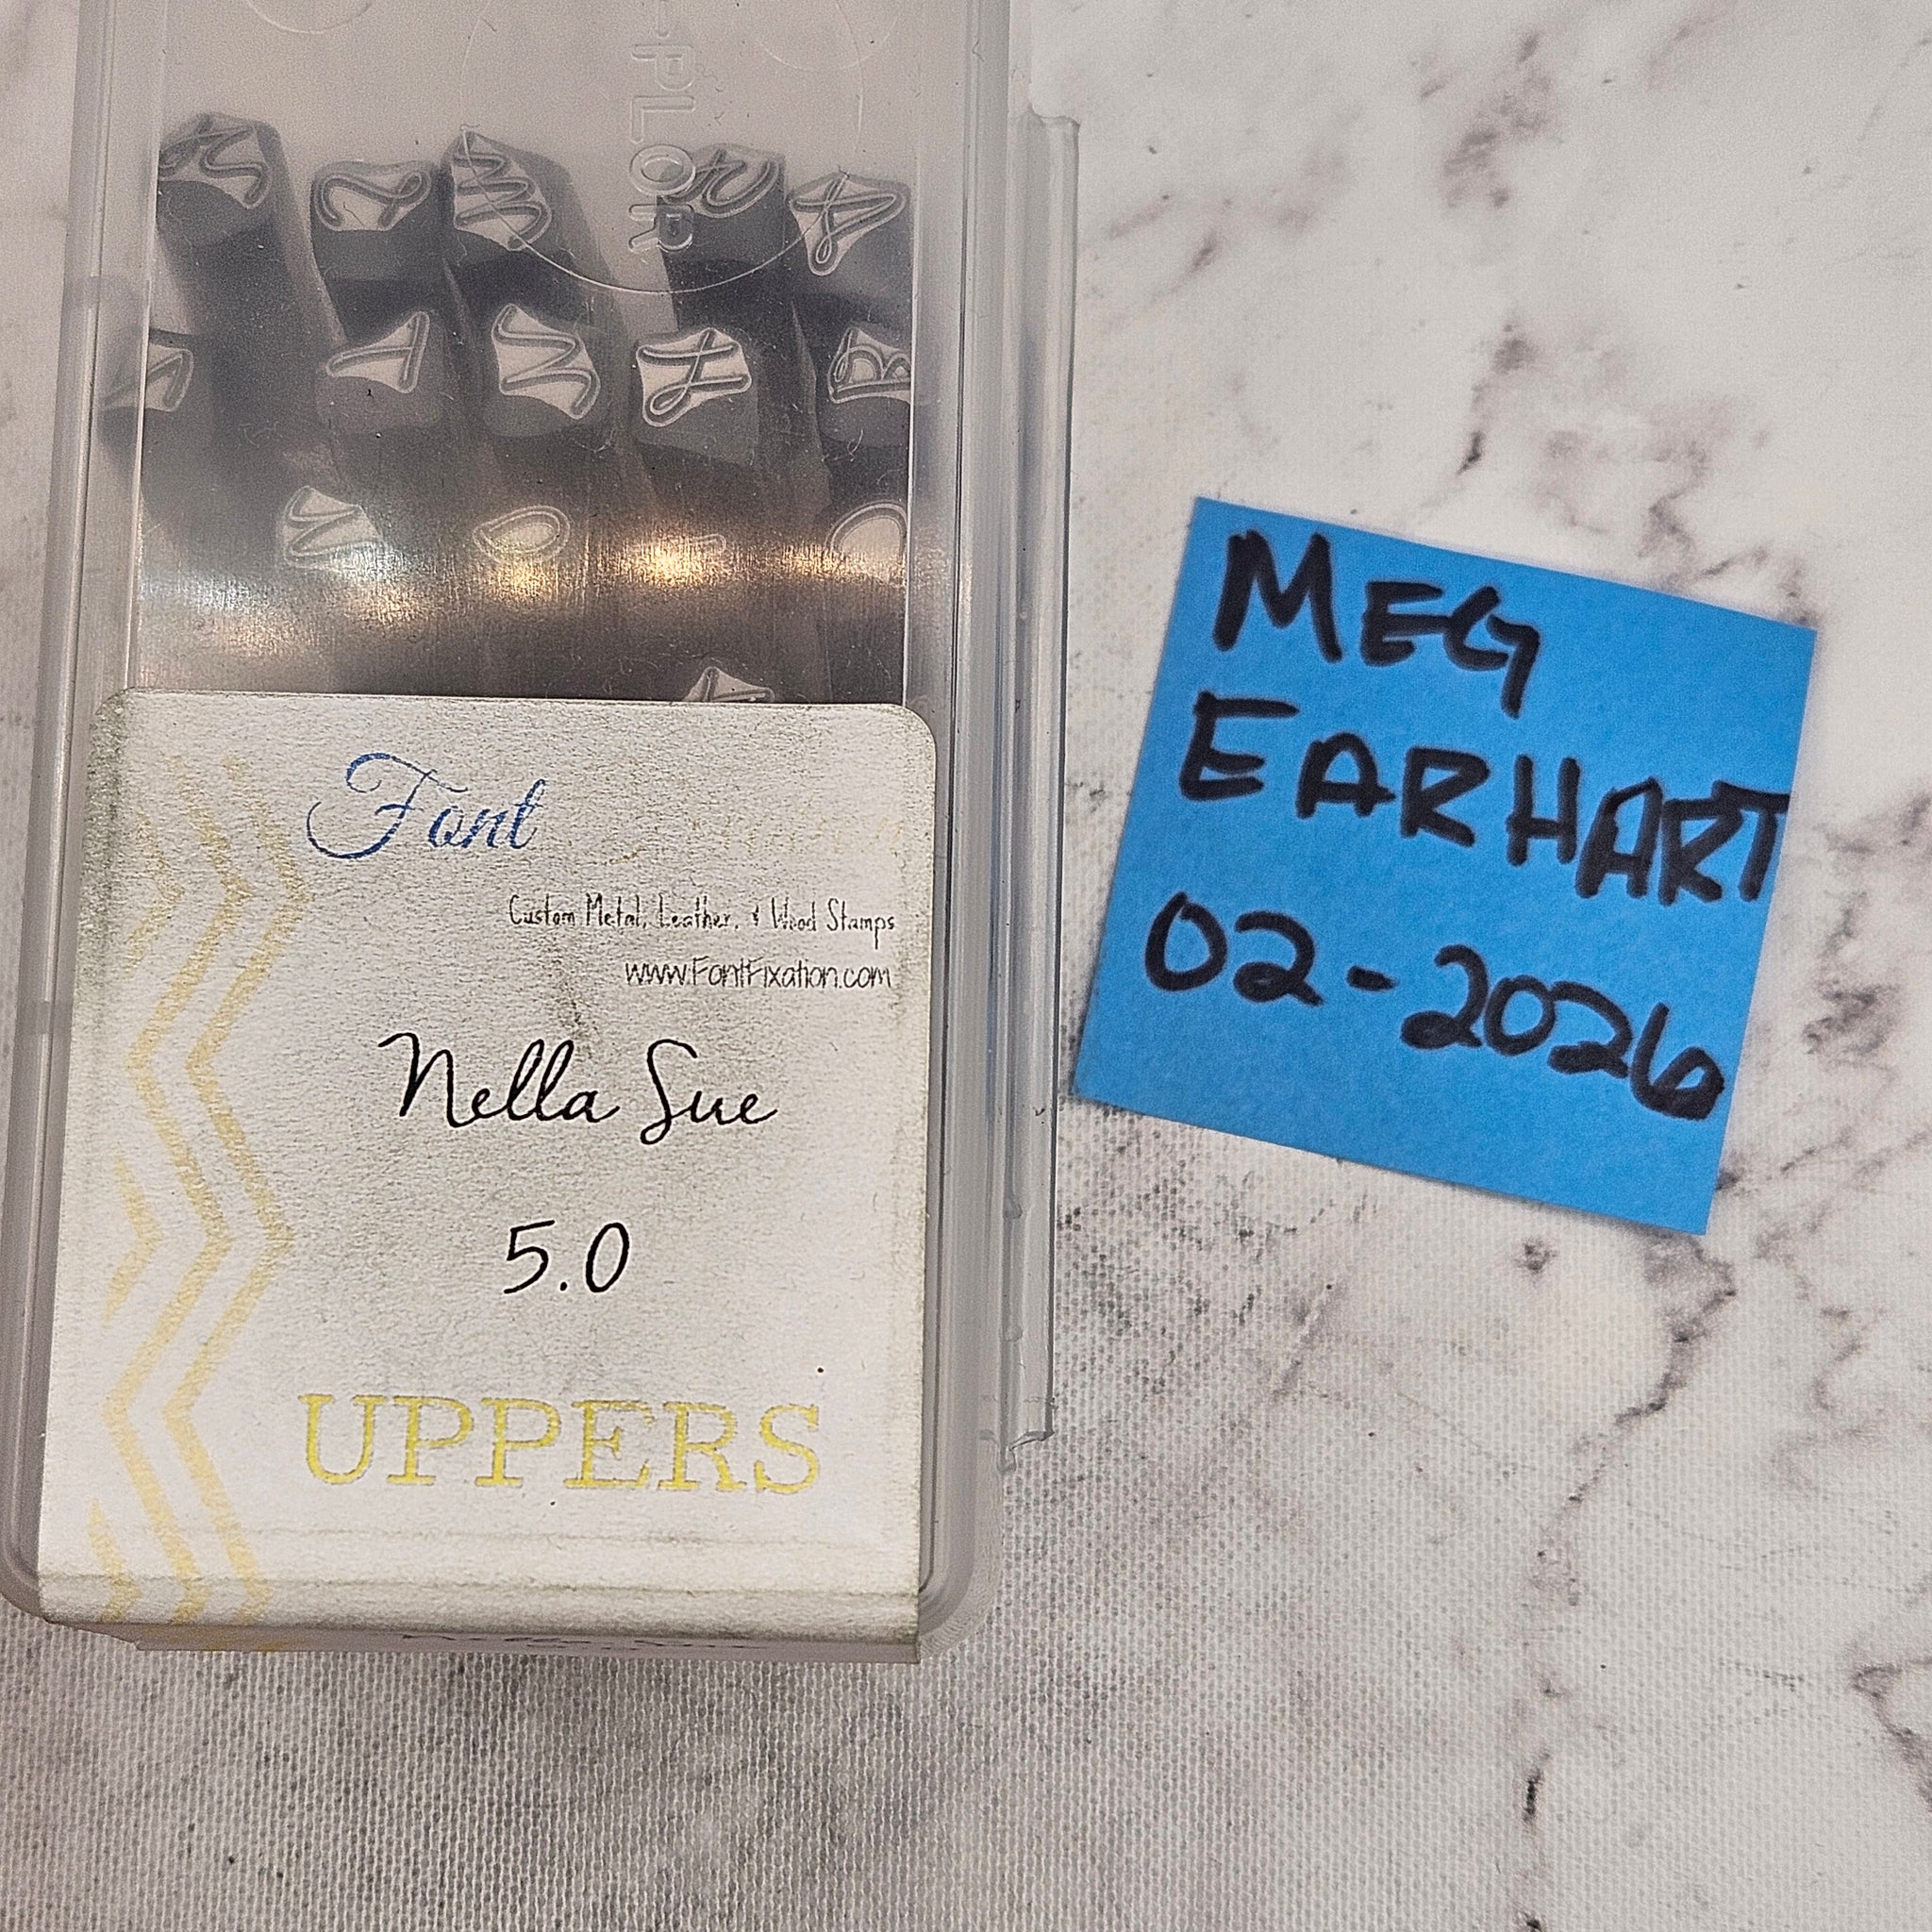 -PLOR
Font
Custom Metal, Leather, & Wood Stamps
www.FontFixation.com
Nella Sue
5.0
UPPERS
MEG
EARHART
02-2026